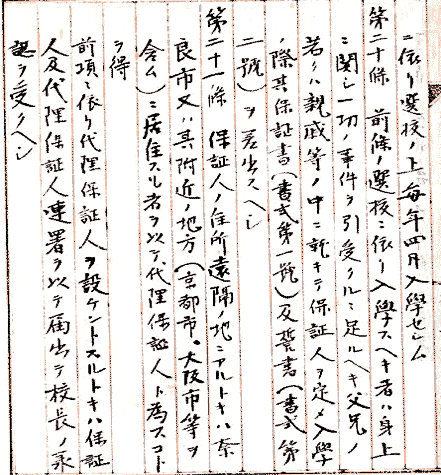 ニ依リ選抜ノ上毎年四月入學セシム
第二十條　前條ノ選抜ニ依リ入學スヘキ者ハ身上
ニ関シ一切ノ事件ヲ引受クルニ足ルヘキ父兄ノ
若クハ親戚等ノ中ニ就キテ保証人ヲ定メ入學
ノ際其保証書(書式第一號)及誓書(書式第
二號)ヲ差出スヘシ
第二十一條　保証人ノ住所遠隔ノ地ニアルトキハ奈
良市又ハ其附近ノ地方(京都市、大阪市等ヲ
含ム)ニ居住スル者ヲ以テ代理保証人ト為スコト
ヲ得
前項ニ依リ代理保証人ヲ設ケントスルトキハ保証
人及代理保証人連署ヲ以テ届出テ校長ノ承
認ヲ受クヘシ